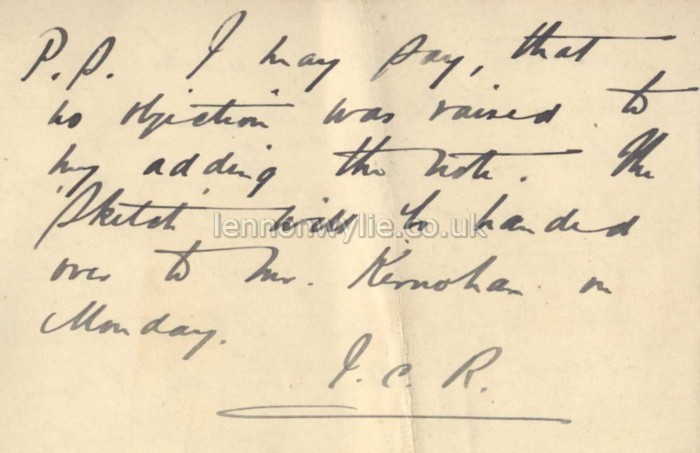 P.S. I may say, that
no objection was raised to
my adding the note. The
'Sketch' will be handed
lennonwylie.co.uk
over to Mr. Kernohan on
Monday.
J. C. R.